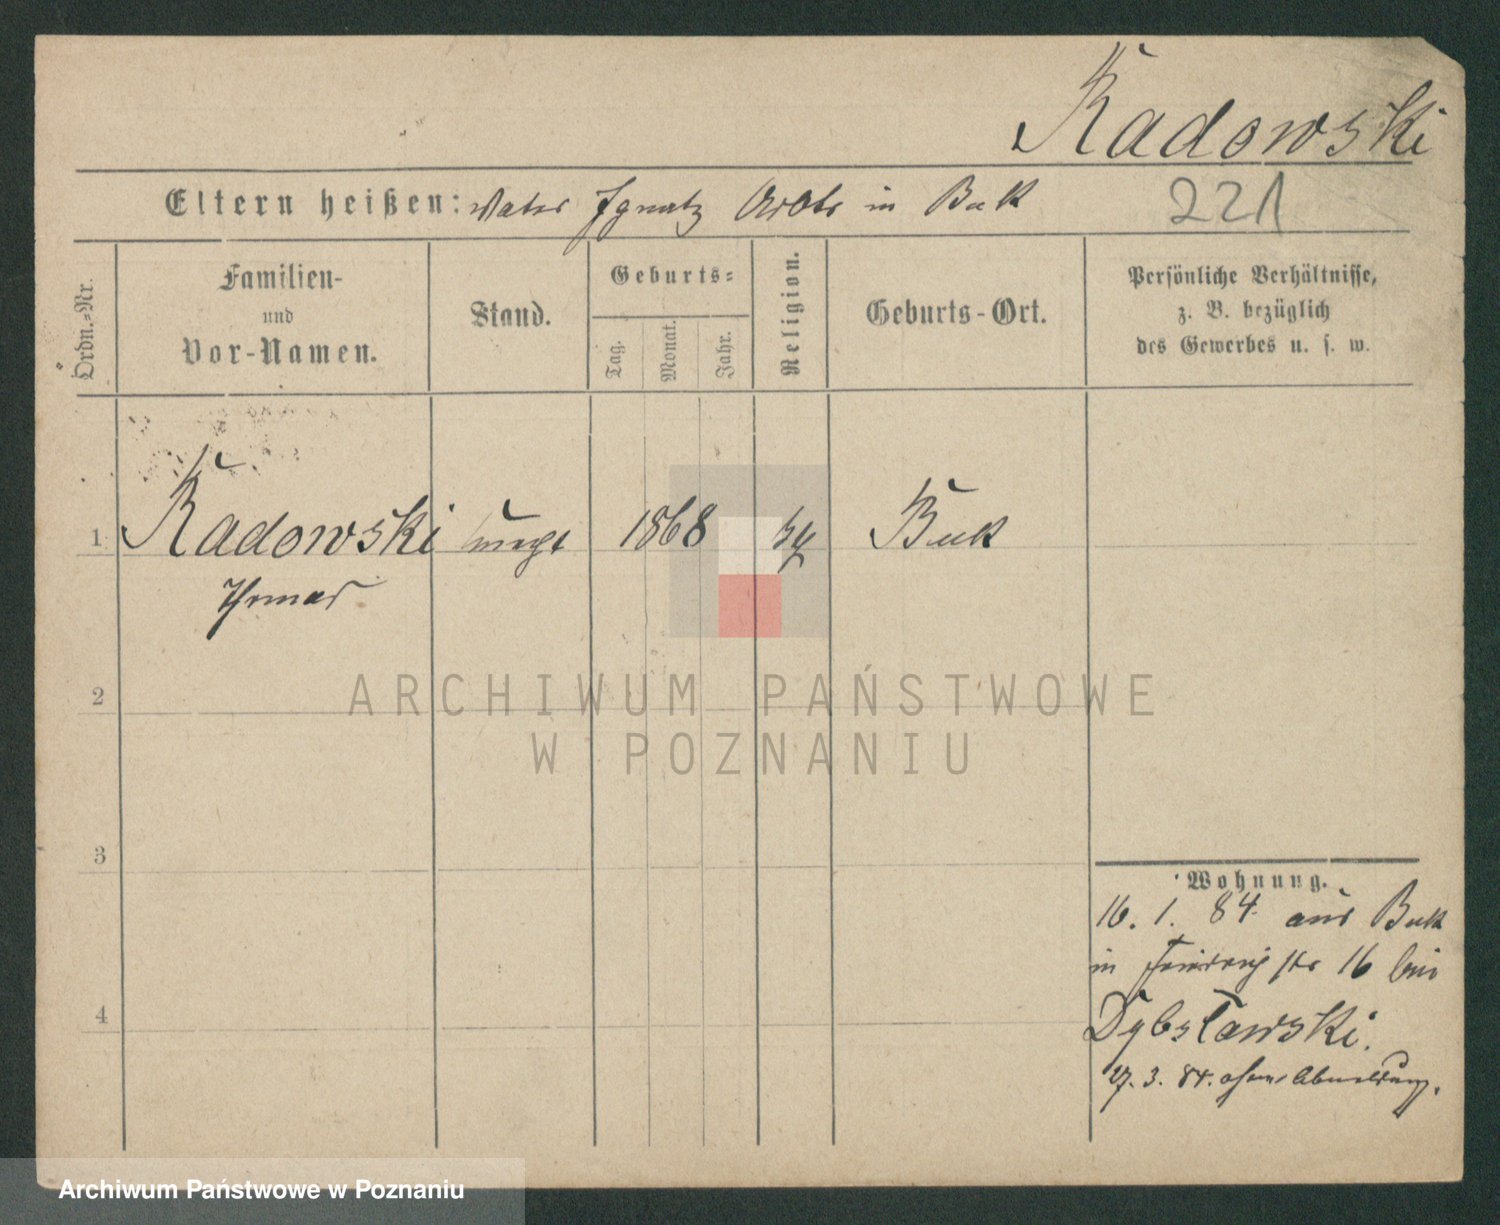 Radowski
Eltern heißen: Vater Ignatz Arbtr in Buk
221
Ordn.=Nr.
Familien-
und
Vor-Namen.
Stand.
Geburts=
Tag.
Monat.
Jahr.
Religion.
Geburts-Ort.
Persönliche Verhältnisse,
z. B. bezüglich
des Gewerbes u. s. w.
1 Radowski 1868 Buk
Thomas
2
ARCHIWUM PAŃSTWOWE
W POZNANIU
3
4
Wohnung.
16. 1. 84 aus Buk
in str 16 bei
Dybsławski.
27. 3. 84. ohne Abmeldung.
Archiwum Państwowe w Poznaniu